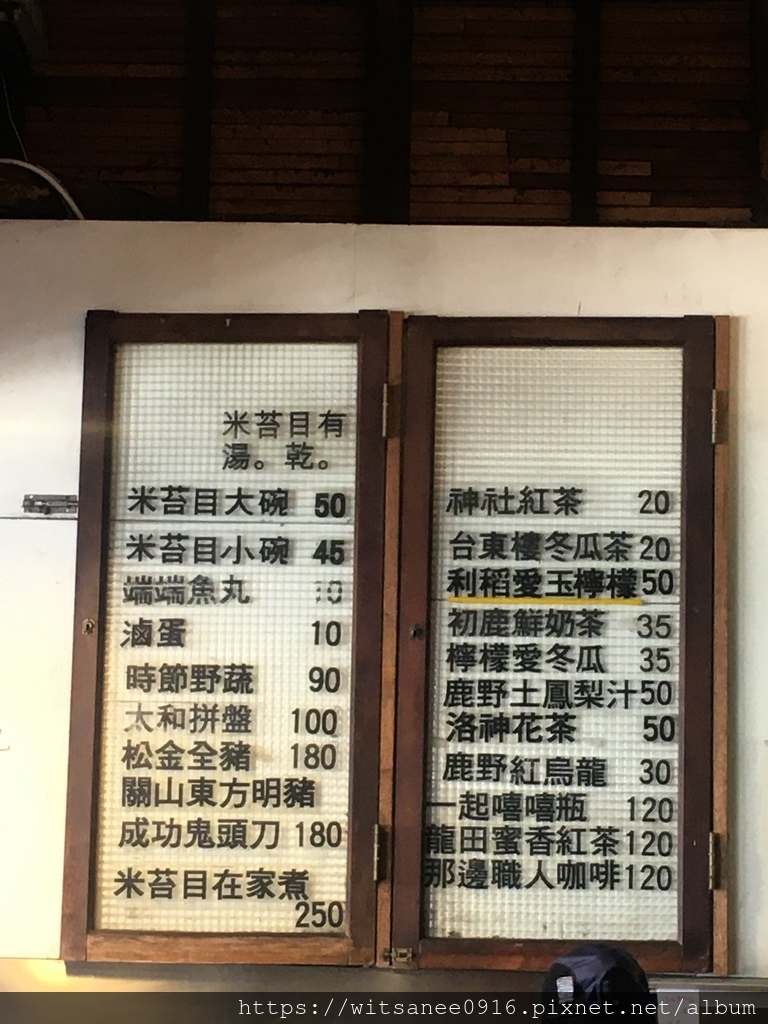 米苔目有
湯。乾。
米苔目大碗 50
米苔目小碗 45
端端魚丸 10
滷蛋 10
時節野蔬 90
太和拼盤 100
松金全豬 180
關山東方明豬
成功鬼頭刀 180
米苔目在家煮
250
神社紅茶 20
台東樓冬瓜茶 20
利稻愛玉檸檬 50
初鹿鮮奶茶 35
檸檬愛冬瓜 35
鹿野土鳳梨汁 50
洛神花茶 50
鹿野紅烏龍 30
一起嘻嘻瓶 120
龍田蜜香紅茶 120
那邊職人咖啡 120
https://witsanee0916.pixnet.net/album